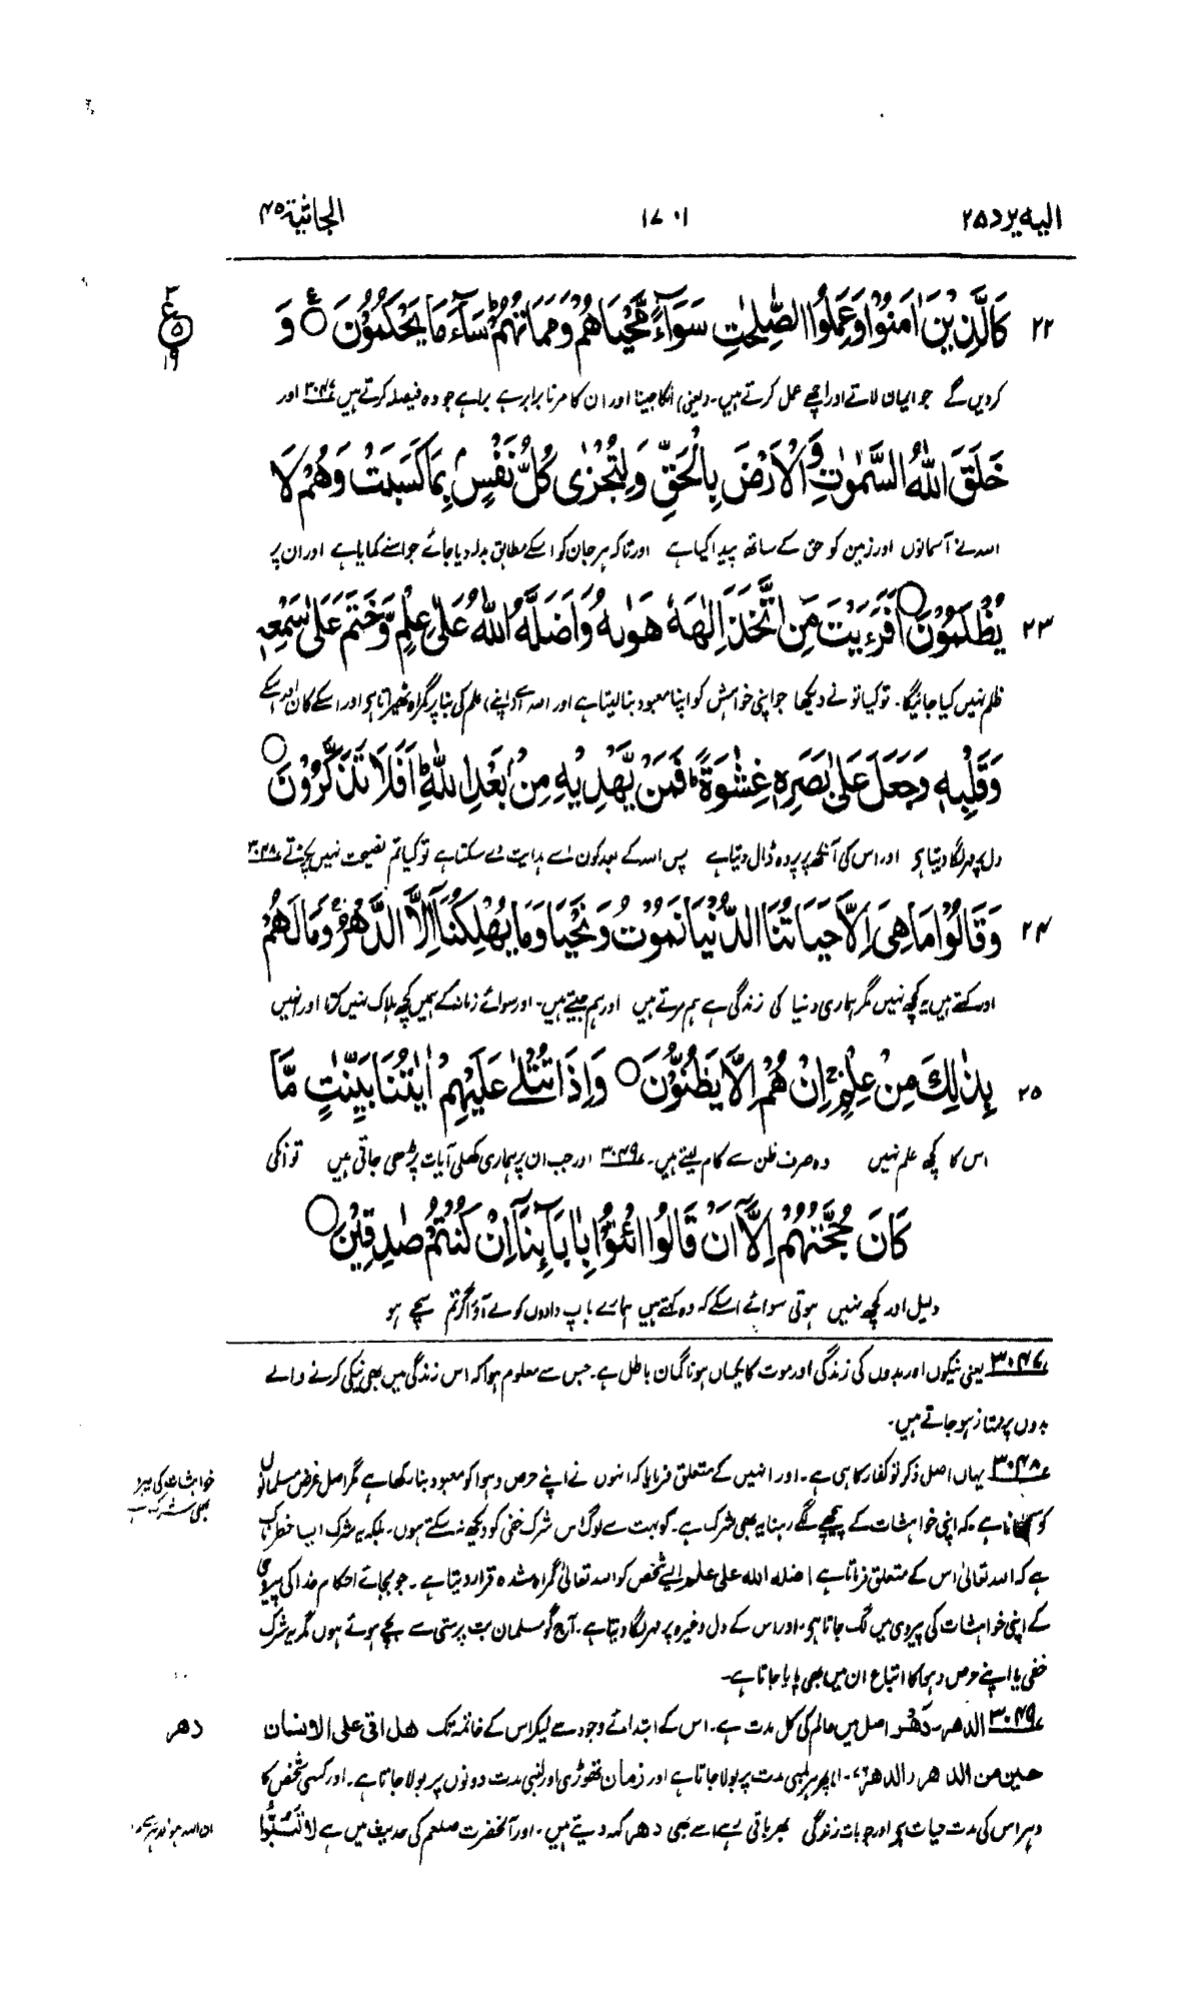 الیه یرد ۲۵
۱۷۰۱
الجاثیة ۴۵
كَالَّذِيْنَ اٰمَنُوْا وَعَمِلُوا الصّٰلِحٰتِ سَوَآءً مَّحْيَاهُمْ وَمَمَاتُهُمْ ؕ سَآءَ مَا يَحْكُمُوْنَ ○ وَ ۲۲
۲ ع ۵ ۱۹
کردیں گے جو ایمان لاتے اور اچھے عمل کرتے ہیں۔ (یعنی) انکا جینا اور ان کا مرنا برابر ہے براہے جو وہ فیصلہ کرتے ہیں ۳۰۴۷ اور
خَلَقَ اللّٰهُ السَّمٰوٰتِ وَالْاَرْضَ بِالْحَقِّ وَلِتُجْزٰى كُلُّ نَفْسٍۭ بِمَا كَسَبَتْ وَهُمْ لَا
اللہ نے آسمانوں اور زمین کو حق کے ساتھ پیدا کیا ہے اور تاکہ ہر جان کو اسکے مطابق بدلہ دیا جائے جو اسنے کمایا ہے اور ان پر
يُظْلَمُوْنَ ○ اَفَرَءَيْتَ مَنِ اتَّخَذَ اِلٰهَهٗ هَوٰىهُ وَاَضَلَّهُ اللّٰهُ عَلٰى عِلْمٍ وَّخَتَمَ عَلٰى سَمْعِهٖ ۲۳
ظلم نہیں کیا جائیگا۔ تو کیا تو نے دیکھا جو اپنی خواہش کو اپنا معبود بنا لیتا ہے اور اللہ اسے (اپنے) علم کی بنا پر گمراہ ٹھیراتا ہو اور اسکے کان اور اسکے
وَقَلْبِهٖ وَجَعَلَ عَلٰى بَصَرِهٖ غِشٰوَةً ؕ فَمَنْ يَّهْدِيْهِ مِنْۢ بَعْدِ اللّٰهِ ؕ اَفَلَا تَذَكَّرُوْنَ ○
دل پر مہر لگا دیتا ہو اور اس کی آنکھ پر پردہ ڈال دیتا ہے پس اللہ کے بعد کون اسے ہدایت دے سکتا ہے تو کیا تم نصیحت نہیں پکڑتے ۳۰۴۸
وَقَالُوْا مَا هِىَ اِلَّا حَيَاتُنَا الدُّنْيَا نَمُوْتُ وَنَحْيَا وَمَا يُهْلِكُنَآ اِلَّا الدَّهْرُ ۚ وَمَا لَهُمْ ۲۴
اور کہتے ہیں یہ کچھ نہیں مگر ہماری دنیا کی زندگی ہے ہم مرتے ہیں اور ہم جیتے ہیں۔ اور سوائے زمانہ کے ہمیں کچھ ہلاک نہیں کرتا اور انہیں
بِذٰلِكَ مِنْ عِلْمٍ ۚ اِنْ هُمْ اِلَّا يَظُنُّوْنَ ○ وَاِذَا تُتْلٰى عَلَيْهِمْ اٰيٰتُنَا بَيِّنٰتٍ مَّا ۲۵
اس کا کچھ علم نہیں وہ صرف ظن سے کام لیتے ہیں۔ ۳۰۴۹ اور جب ان پر ہماری کھلی آیات پڑھی جاتی ہیں تو انکی
كَانَ حُجَّتَهُمْ اِلَّآ اَنْ قَالُوا ائْتُوْا بِاٰبَآئِنَآ اِنْ كُنْتُمْ صٰدِقِيْنَ ○
دلیل اور کچھ نہیں ہوتی سوائے اسکے کہ وہ کہتے ہیں ہمارے باپ دادوں کو لے آؤ اگر تم سچے ہو
۳۰۴۷ یعنی نیکوں اور بدوں کی زندگی اور موت کا یکساں ہونا گمان باطل ہے۔ جس سے معلوم ہوا کہ اس زندگی میں بھی نیکی کرنے والے
بدوں پر ممتاز ہو جاتے ہیں۔
۳۰۴۸ یہاں اصل ذکر تو کفار کا ہی ہے۔ اور انہیں کے متعلق فرمایا کہ انہوں نے اپنے حرص و ہوا کو معبود بنا رکھا ہے مگر اصل غرض مسلمانوں
خواہشات کی پیروی بھی شرک ہے
کو سکھانا ہے۔ کہ اپنی خواہشات کے پیچھے لگے رہنا یہ بھی شرک ہے۔ گو بہت سے لوگ اس شرک خفی کو دیکھ نہ سکتے ہوں۔ بلکہ یہ شرک ایسا خطرناک
ہے کہ اللہ تعالیٰ اس کے متعلق فرماتا ہے اضله الله علی علم ایسے شخص کو اللہ تعالیٰ گمراہ شدہ قرار دیتا ہے۔ جو بجائے احکام خدا کی پیروی
کے اپنی خواہشات کی پیروی میں لگ جاتا ہو۔ اور اس کے دل وغیرہ پر مہر لگا دیتا ہے۔ آج گو مسلمان بت پرستی سے بچے ہوئے ہوں مگر یہ شرک
خفی یا اپنے حرص و ہوا کا اتباع ان میں بھی پایا جاتا ہے۔
۳۰۴۹ الدهر۔ دَهْر اصل میں عالم کی کل مدت ہے۔ اس کے ابتدائے وجود سے لیکر اس کے خاتمہ تک هل اتی علی الانسان
دهر
حین من الدهر (الدهر ۷۶-۱) پھر ہر لمبی مدت پر بولا جاتا ہے اور زمان تھوڑی اور لمبی مدت دونوں پر بولا جاتا ہے۔ اور کسی شخص کا
دہر اس کی مدت حیات ہے اور جو بات زندگی بھر باقی رہے اسے بھی دھر کہہ دیتے ہیں۔ اور آنحضرت صلعم کی حدیث میں ہے لا تَسُبُّوا